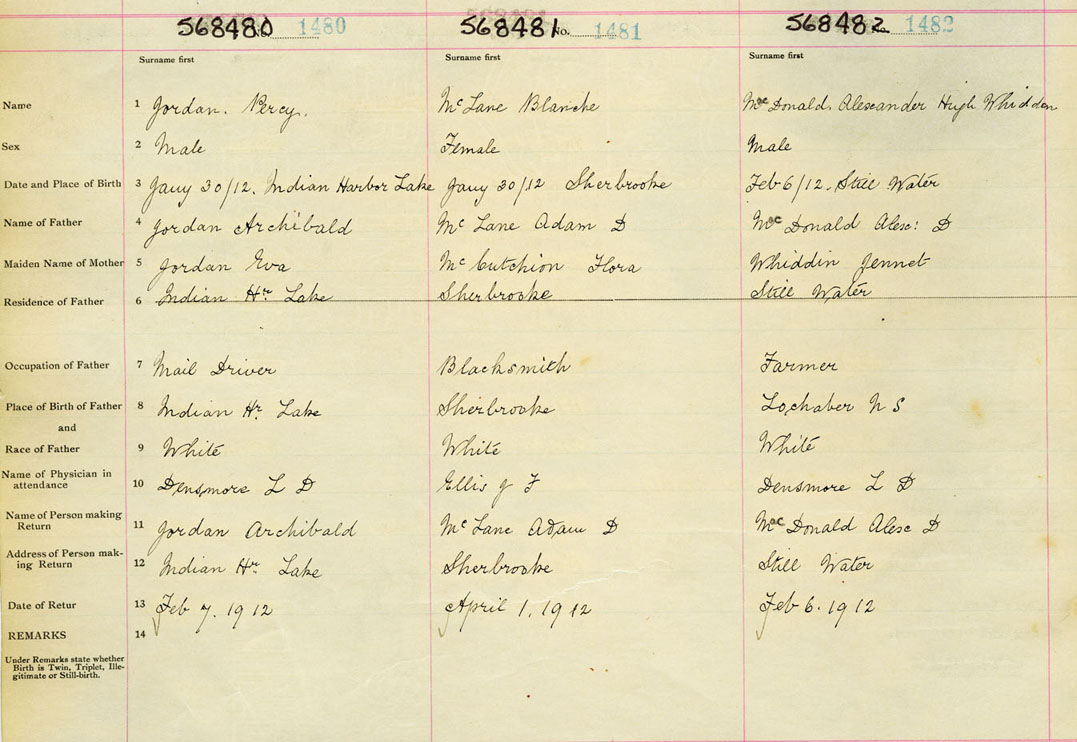 568480 No. 1480 568481 No. 1481 568482 No. 1482
Surname first Surname first Surname first
Name 1 Jordan. Percy. McLane Blanche MacDonald. Alexander Hugh Whidden
Sex 2 Male Female Male
Date and Place of Birth 3 Jany 30/12. Indian Harbor Lake Jany 30/12 Sherbrooke Feb 6/12. Still Water
Name of Father 4 Jordan Archibald McLane Adam D MacDonald Alex: D
Maiden Name of Mother 5 Jordan Eva McCutchion Flora Whiddin Jennet
Residence of Father 6 Indian Hr Lake Sherbrooke Still Water
Occupation of Father 7 Mail Driver Blacksmith Farmer
Place of Birth of Father 8 Indian Hr Lake Sherbrooke Lochaber N S
and
Race of Father 9 White White White
Name of Physician in
attendance 10 Densmore L D Ellis J F Densmore L D
Name of Person making
Return 11 Jordan Archibald McLane Adam D MacDonald Alex D
Address of Person mak-
ing Return 12 Indian Hr Lake Sherbrooke Still Water
Date of Retur 13 Feb 7. 1912 April 1. 1912 Feb 6. 1912
REMARKS 14
Under Remarks state whether
Birth is Twin, Triplet, Ille-
gitimate or Still-birth.